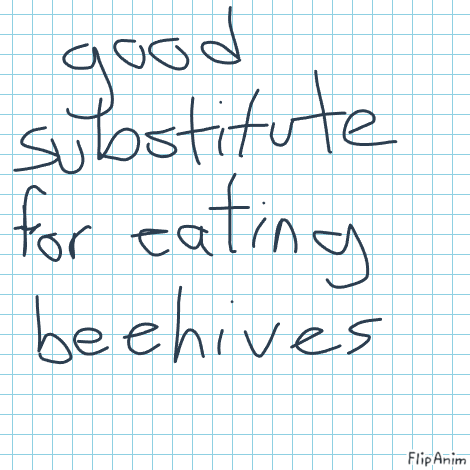 good
substitute
for eating
beehives
FlipAnim